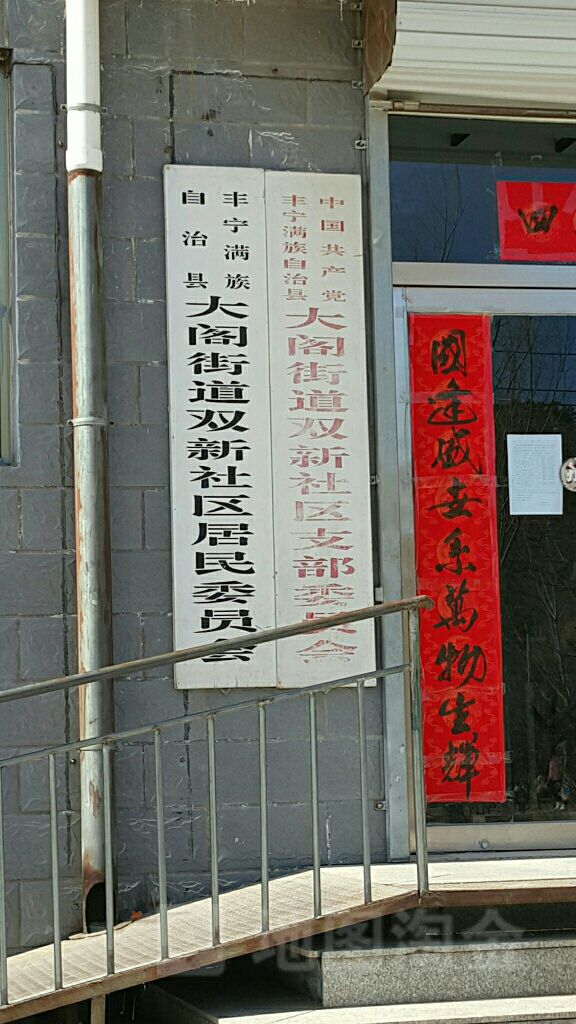 中国共产党
丰宁满族自治县
大阁街道双新社区支部委员会
丰宁满族
自治县
大阁街道双新社区居民委员会
四
國逢盛世系萬物生輝
地图淘金